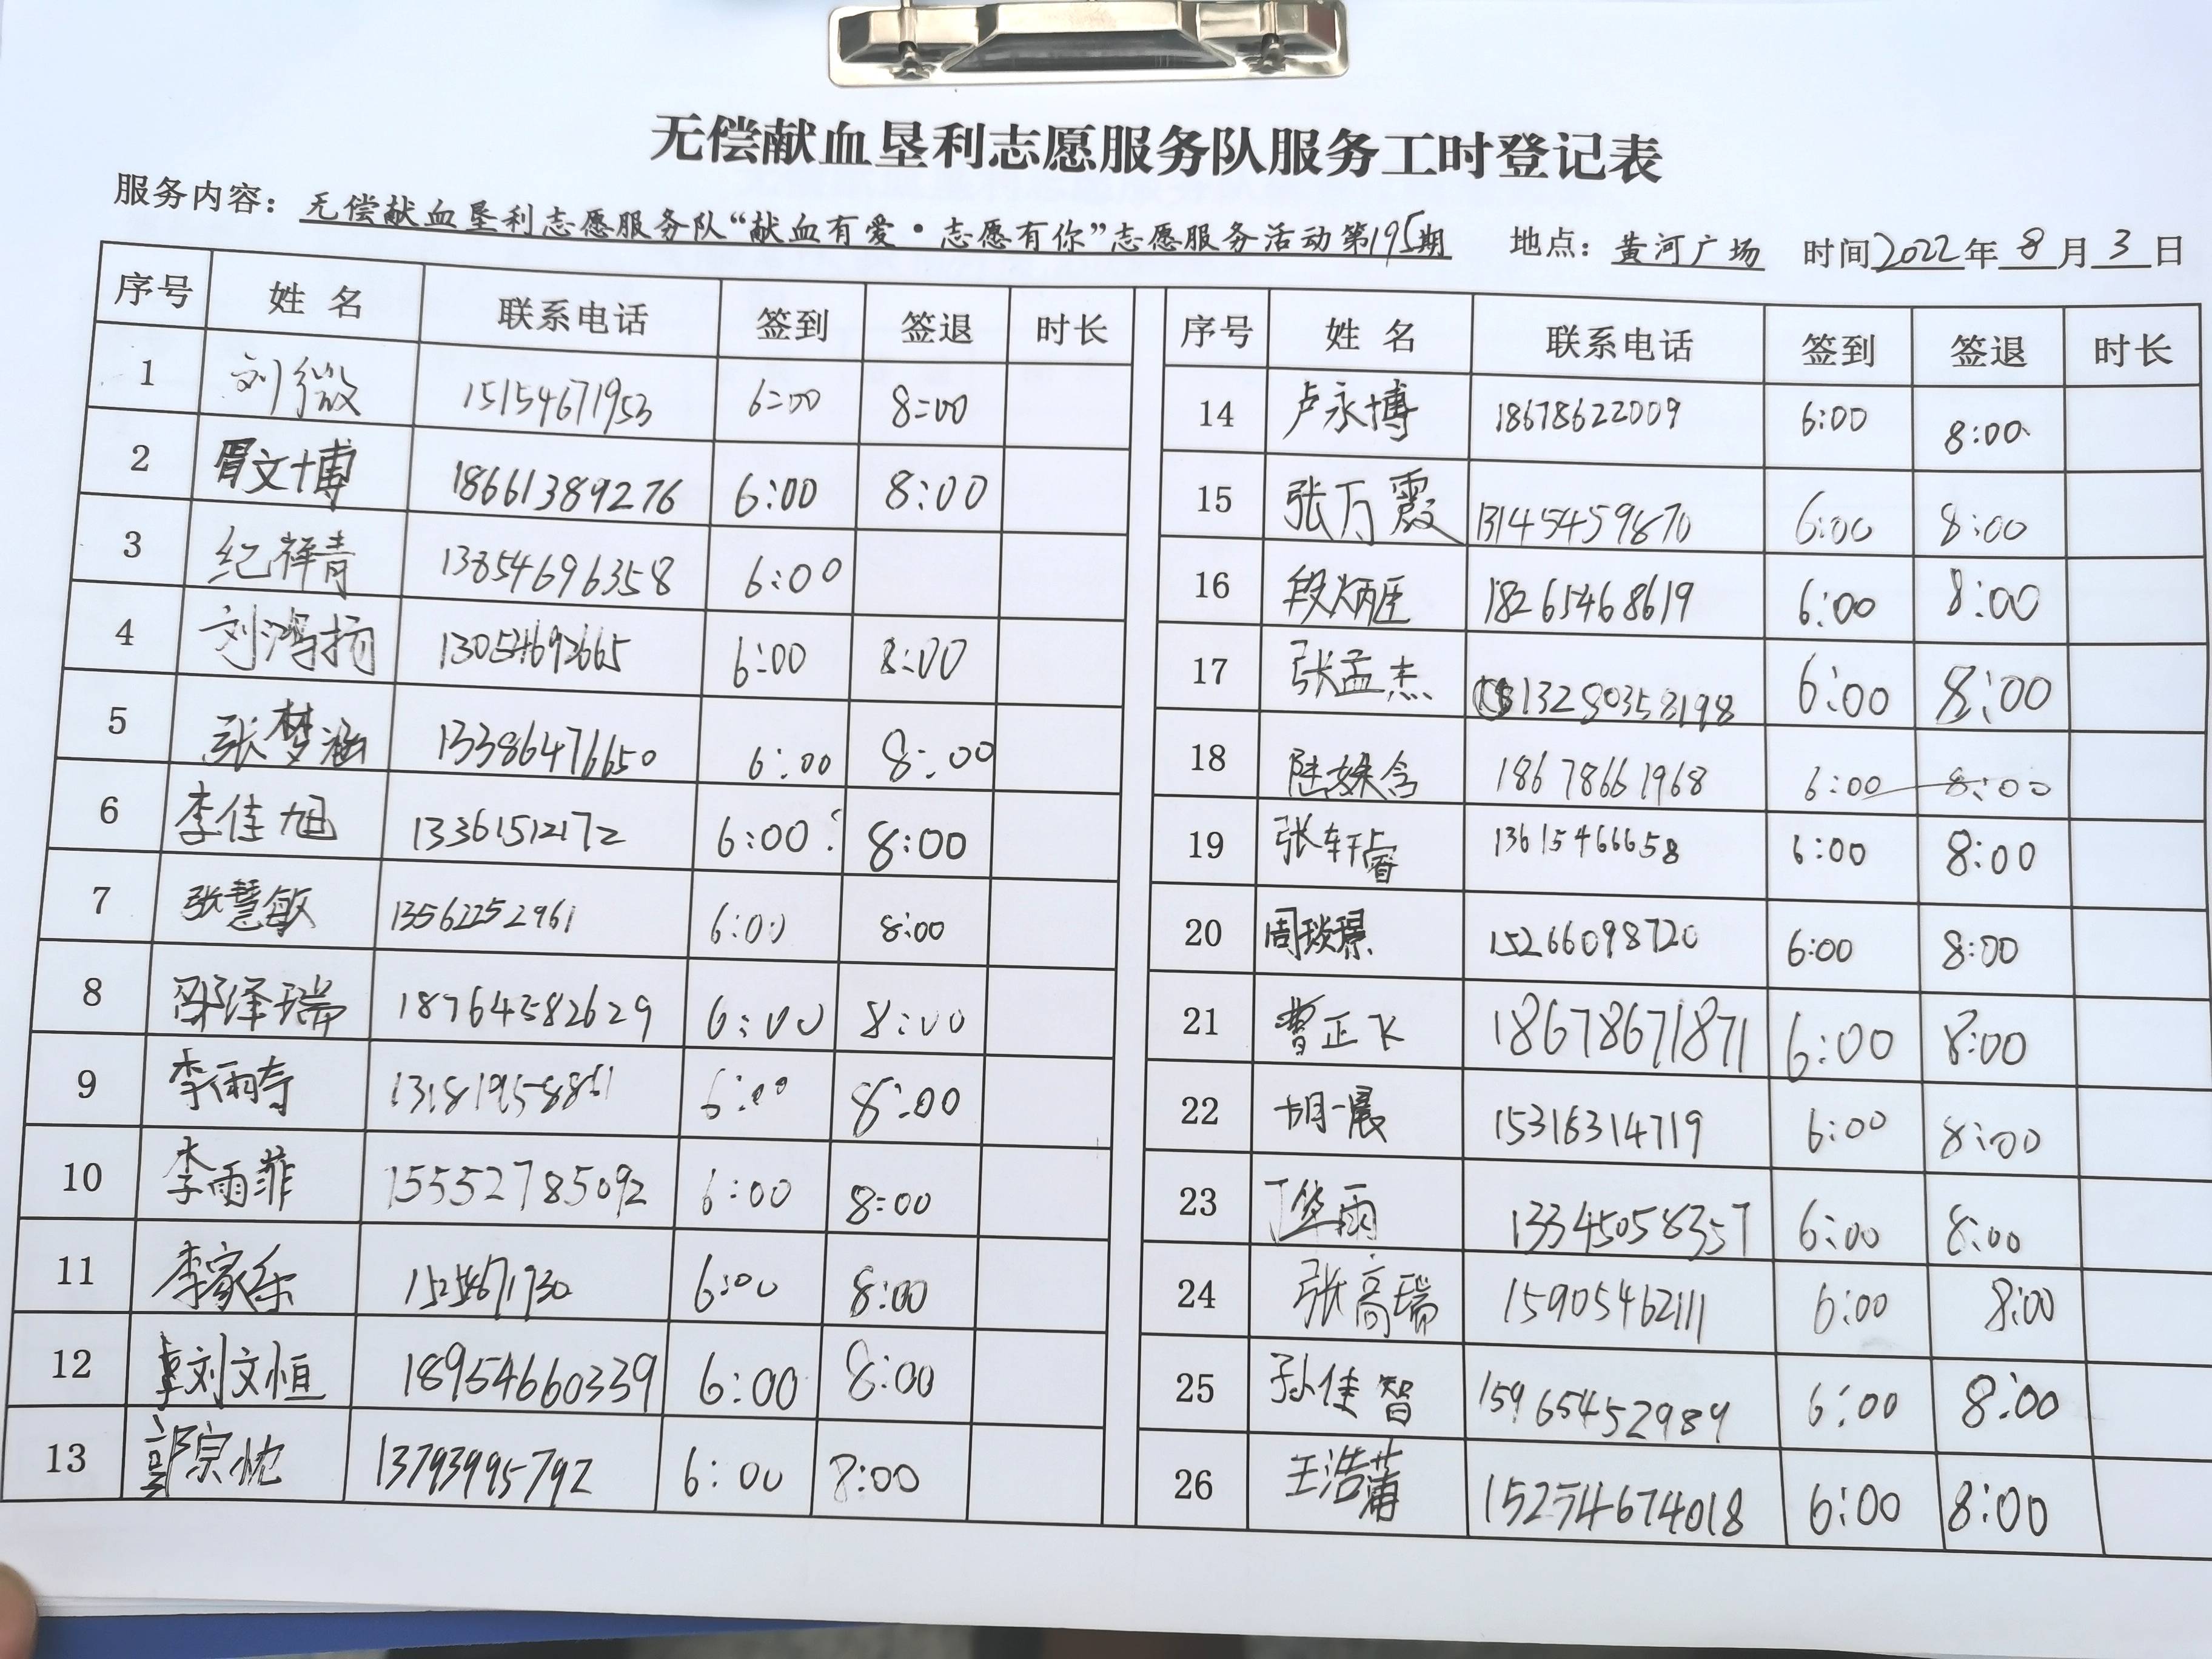 无偿献血垦利志愿服务队服务工时登记表
服务内容：无偿献血垦利志愿服务队“献血有爱·志愿有你”志愿服务活动第195期 地点：黄河广场 时间2022年8月3日
序号 姓名 联系电话 签到 签退 时长
1 刘微 15154671953 6:00 8:00
2 胥文博 18661389276 6:00 8:00
3 纪祥青 13854696358 6:00
4 刘鸿扬 13054692665 6:00 8:00
5 张梦涵 13386476650 6:00 8:00
6 李佳旭 13361512172 6:00 8:00
7 张慧敏 13562252961 6:00 8:00
8 邵泽瑞 18764582629 6:00 8:00
9 李雨奇 6:00 8:00
10 李雨菲 15552785092 6:00 8:00
11 李家乐 6:00 8:00
12 刘文恒 18954660339 6:00 8:00
13 郭宗忱 13793995792 6:00 8:00
序号 姓名 联系电话 签到 签退 时长
14 卢永博 18678622009 6:00 8:00
15 张万霞 13145459870 6:00 8:00
16 段炳臣 18265468619 6:00 8:00
17 张孟杰 13280358198 6:00 8:00
18 陆姝含 18678661968 6:00 8:00
19 张轩睿 13615466658 6:00 8:00
20 周琰璟 15266098720 6:00 8:00
21 曹正飞 18678671871 6:00 8:00
22 胡一晨 15316314719 6:00 8:00
23 丁华雨 13345058357 6:00 8:00
24 张高瑞 15905462111 6:00 8:00
25 孙佳智 15965452989 6:00 8:00
26 王浩蒲 15254674018 6:00 8:00